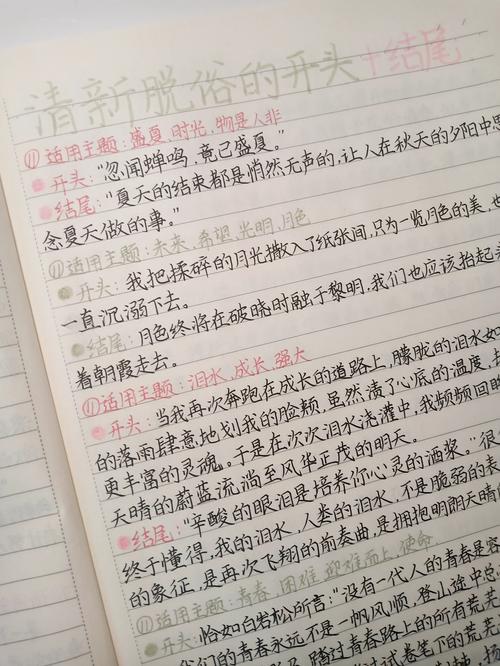 清新脱俗的开头+结尾
(1) 适用主题:盛夏、时光,物是人非
开头:"忽闻蝉鸣,竟已盛夏。"
结尾:"夏天的结束都是悄然无声的,让人在秋天的夕阳中思
念夏天做的事。"
(1) 适用主题:未来、希望、光明、月色
开头:我把揉碎的月光撒入了纸张间,只为一览月色的美,也
一直沉溺下去。
结尾:月色终将在破晓时融于黎明,我们也应该抬起
着朝霞走去。
(1) 适用主题:泪水、成长、强大
开头:当我再次奔跑在成长的道路上,朦胧的泪水如
的落雨肆意地划我的脸颊,虽然渍了心底的温度,
更丰富的灵魂。于是在次次泪水浇灌中,我频频回
天晴的蔚蓝流淌至风华正茂的明天。
结尾:"辛酸的眼泪是培养你心灵的酒浆。"很
终于懂得,我的泪水,人类的泪水,不是脆弱的
的象征,是再次飞翔的前奏曲,是拥抱明朗天晴的
(1) 适用主题:青春,困难,迎难而上,使命
开头:恰如白岩松所言:"没有一代人的青春是容
我们的青春永远不是一帆风顺,登山途中总
踏过青春路上的所有荒芜
试卷笔下的荒芜